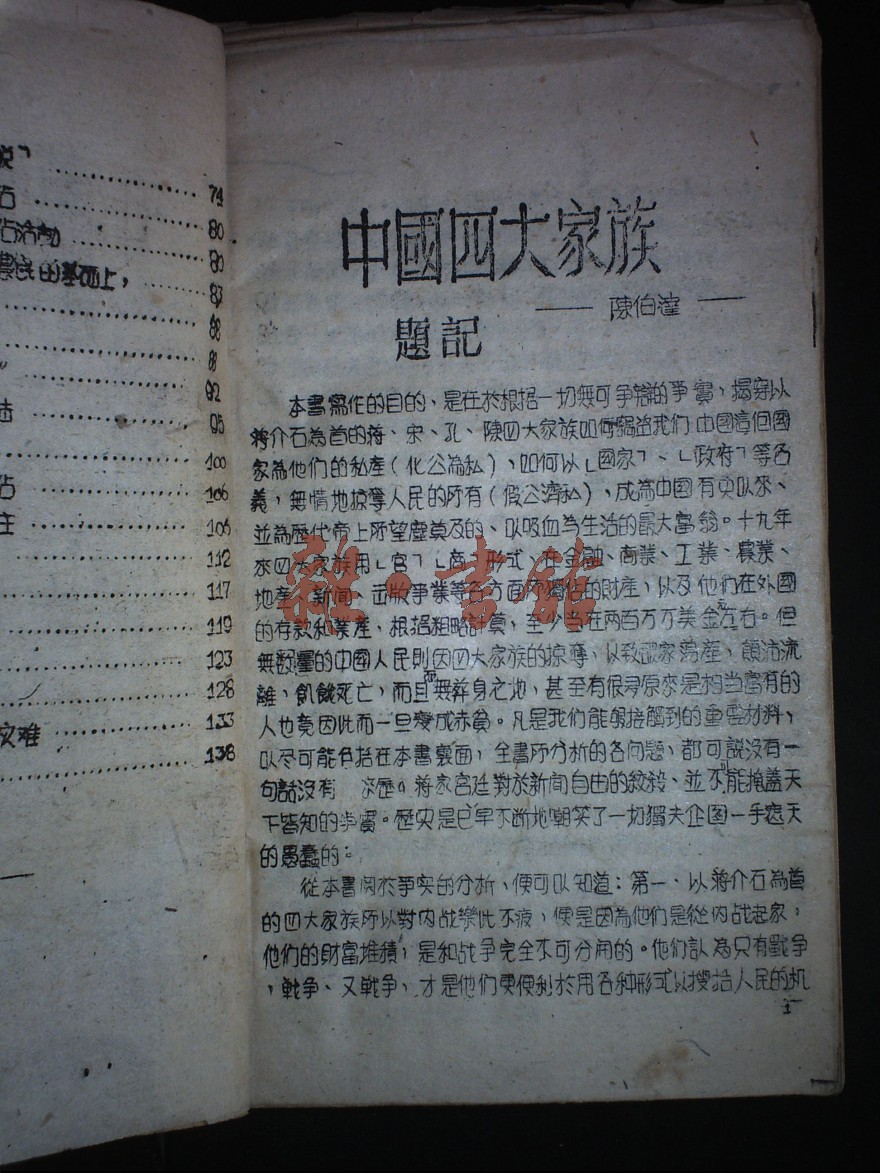 說﹁
74
80
佔活動
80
農民的基础上，
83
88
92
陆
95
100
佔
106
106
112
117
119
123
128
文难
133
138
中國四大家族
—— 陳伯達 ——
題記
本書寫作的目的、是在於根据一切無可争辯的事實，揭穿以
蔣介石為首的蔣、宋、孔、陳四大家族如何竊盜我们中國這個國
家為他们的私產（化公為私）、如何以﹂國家﹁、﹂政府﹁等名
義，無情地掠奪人民的所有（假公濟私）、成為中國有史以來、
並為歷代帝王所望塵莫及的、以吸血為生活的最大富翁。十九年
來四大家族用﹂官﹁﹂商﹁形式、在金融、商業、工業、農業、
地產、新闻、出版事業等各方面所獨佔的財產，以及他们在外國
的存款和業產，根据粗略計算，至少当在两百万万美金左右。但
無數量的中國人民則因四大家族的掠奪，以致破家蕩產，顛沛流
離，飢餓死亡，而且死無葬身之地，甚至有很多原來是相当富有的
人也竟因此而一旦變成赤貧。凡是我们能夠接觸到的重要材料，
以尽可能包括在本書裏面，全書所分析的各问題，都可説沒有一
句話沒有 來歷。蔣家宮廷對於新闻自由的絞殺、並不能掩蓋天
下皆知的事實。歷史是已早不断地嘲笑了一切獨夫企图一手遮天
的愚蠢的。
從本書関於事实的分析，便可以知道：第一、以蔣介石為首
的四大家族所以對内战樂此不疲，便是因為他们是從内战起家，
他们的財富堆積，是和战争完全不可分開的。他们認為只有戰争
，戰争、又戰争、才是他们更便利於用各种形式以搜括人民的机
1
雜·書館